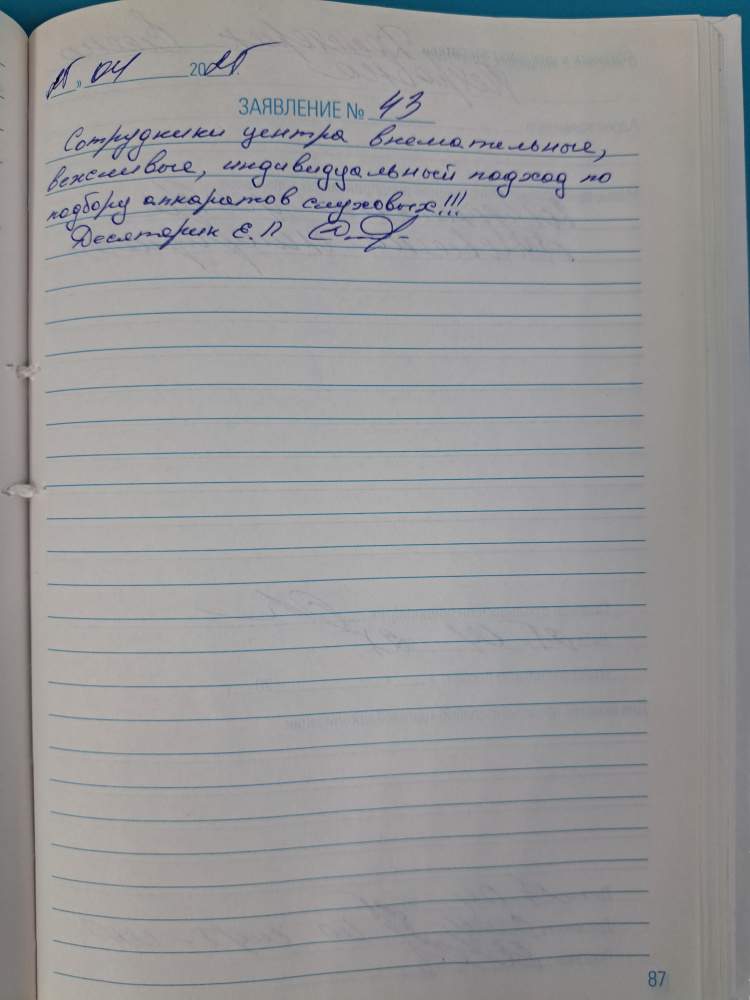 25 » 04 2025.
ЗАЯВЛЕНИЕ № 43
Сотрудники центра внемательные,
вежливые, индивидуальный подход по
подбору аппаратов слуховых!!!
Десятерик Е. П.
87